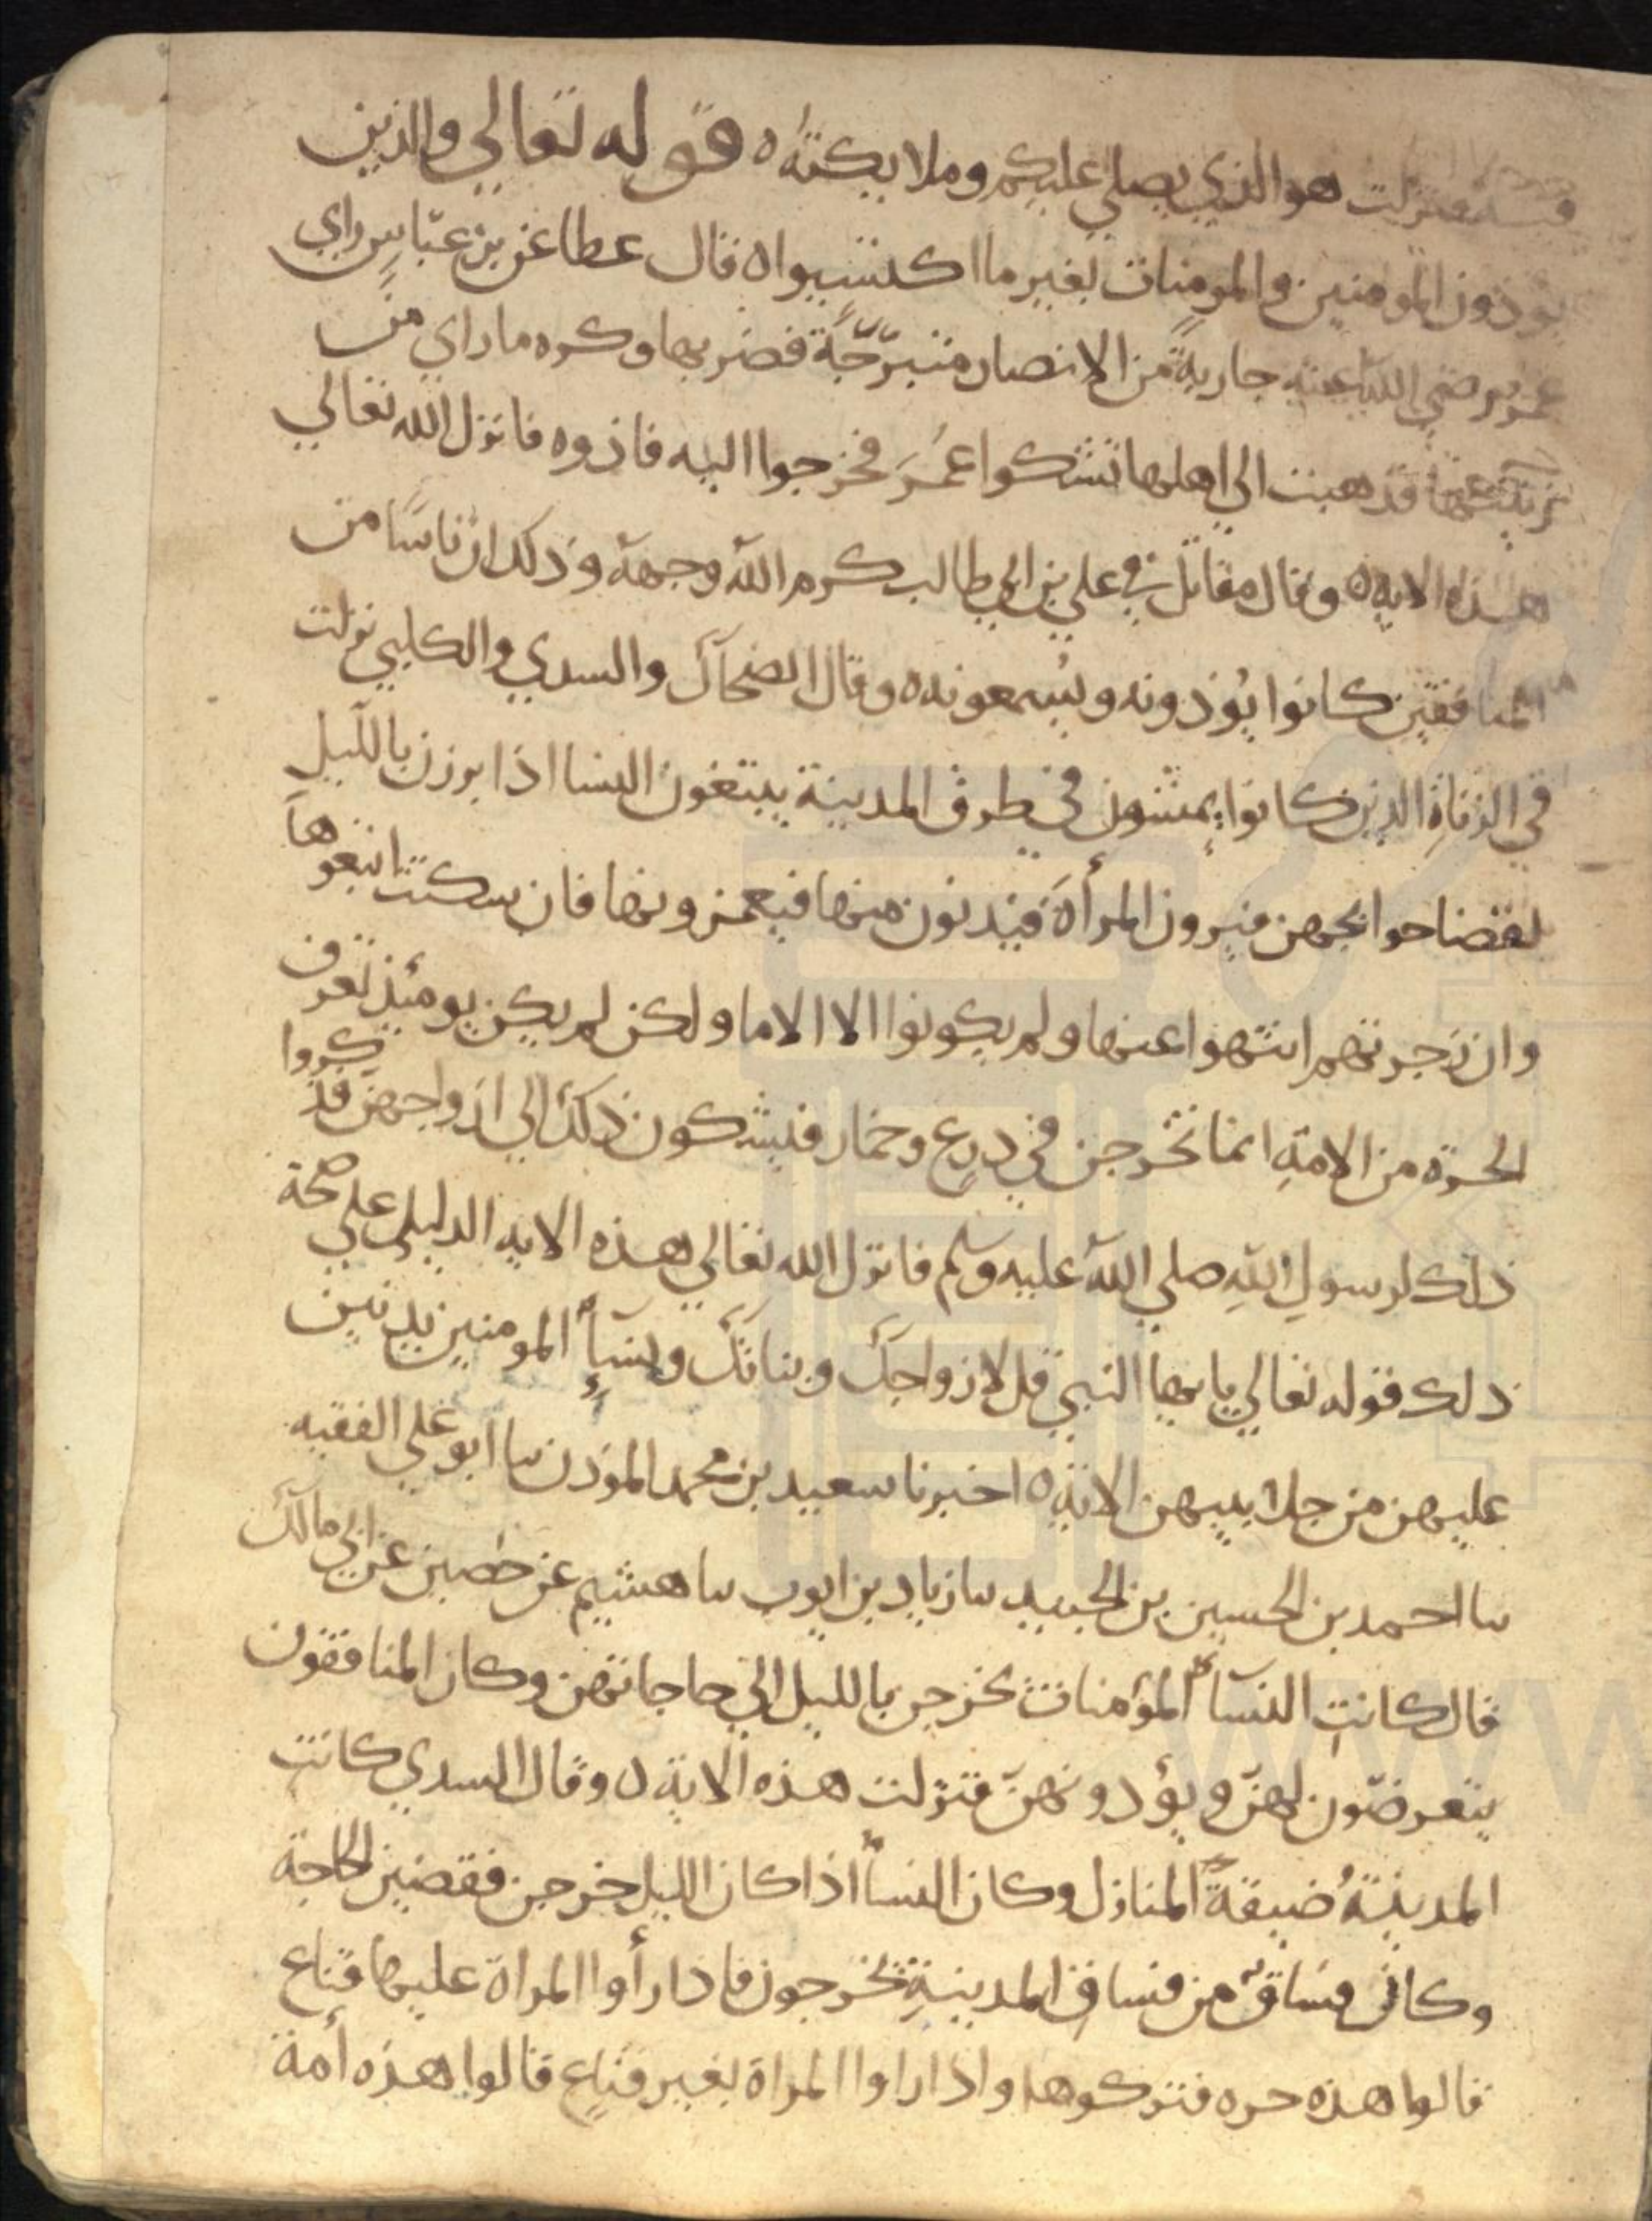 فيه فنزلت هو الذي يصلي عليكم وملايكته ه قوله تعالي والذين
يوذون المومنين والمومنات بغير ما اكتسبوا ه قال عطا عن بن عباس راي
عمر رضي الله عنه جارية من الانصار متبرجة فضربها وكره ما راي من
زينتها فذهبت الي اهلها تشكوا عمر فخرجوا اليه فاذوه فانزل الله تعالي
هذه الايه ه وقال مقاتل في علي بن ابي طالب كرم الله وجهه وذلك ان ناسا من
المنافقين كانوا يوذونه ويسمعونه ه وقال الضحاك والسدي والكلبي نزلت
في الزناة الذين كانوا يمشون في طرق المدينة يبتغون النسا اذا برزن بالليل
لقضا حوايجهن فيرون المرأة فيدنون منها فيغمزونها فان سكتت اتبعوها
وان زجرتهم انتهوا عنها ولم يكونوا الا الاما ولكن لم يكن يومئذ تعرف
الحرة من الامة انما تخرجن في درع وخمار فيشكون ذلك الي ازواجهن فذكروا
ذلك لرسول الله صلي الله عليه وسلم فانزل الله تعالي هذه الايه الدليل علي صحة
ذلك قوله تعالي يا يها النبي قل لازواجك وبناتك ونسآء المومنين يدنين
عليهن من جلابيبهن الاية ه اخبرنا سعيد بن محمد الموذن نا ابو علي الفقيه
نا احمد بن الحسين بن الجنيد نا زياد بن ايوب نا هشيم عن حصين عن ابي مالك
قال كانت النسآء المؤمنات تخرجن بالليل الي حاجاتهن وكان المنافقون
يتعرضون لهن ويؤذونهن فنزلت هذه الاية ه وقال السدي كانت
المدينة ضيقة المنازل وكان النسأ اذا كان الليل خرجن فقضين الحاجة
وكان فساق من فساق المدينة تخرجون فاذا رأوا المراة عليها قناع
قالوا هذه حره فتركوها واذا راوا المراة بغير قناع قالوا هذه أمة